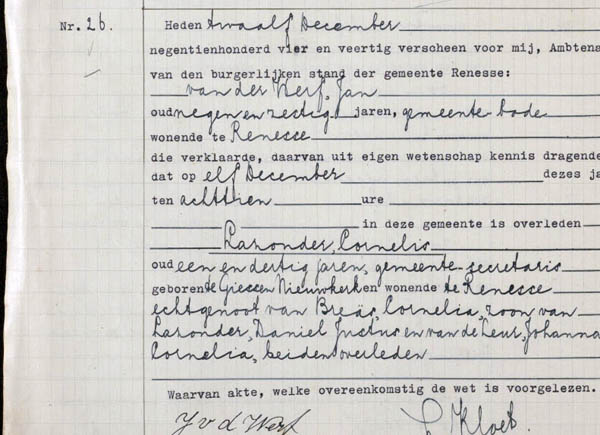 Nr. 26.
Heden twaalf December
negentienhonderd vier en veertig verscheen voor mij, Ambtena
van den burgerlijken stand der gemeente Renesse:
van der Werf, Jan
oud negen en zestig jaren, gemeente-bode
wonende te Renesse
die verklaarde, daarvan uit eigen wetenschap kennis dragende
dat op elf December dezes ja
ten achttien ure
in deze gemeente is overleden
Lazonder, Cornelis
oud een en dertig jaren, gemeente-secretaris
geboren te Giessen Nieuwkerk en wonende te Renesse
echtgenoot van Breäs, Cornelia, zoon van
Lazonder, Daniel Justus en van de Leur, Johanna
Cornelia, beiden overleden
Waarvan akte, welke overeenkomstig de wet is voorgelezen.
J v d Werf Kloet.